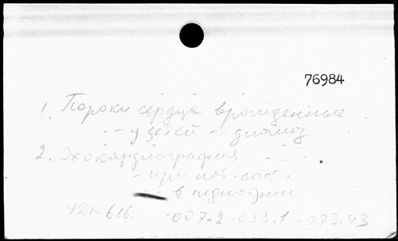 76984
1. Пороки сердца врожденные
-- у детей -- диагноз
2. Эхокардиография
- при пат. сост.
в педиатрии
УДК 616. -007-2-053.1-073.43